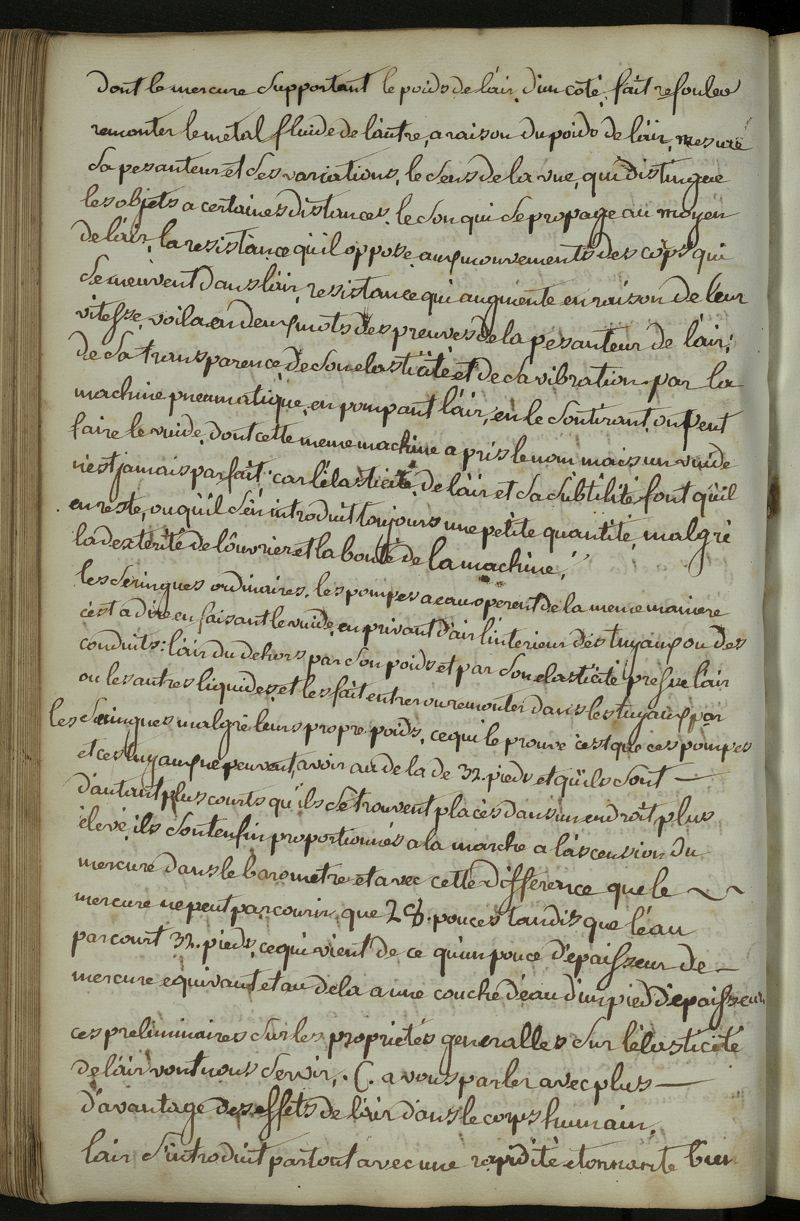 dont le mercure supportant le poids de l'air, d'un coté, fait refouler
remonter le metal fluide de l'autre, a raison du poids de l'air, mesure
sa pesanteur et ses variations, le sens de la vue, qui distingue
les objets a certaines distances, le son qui se propage au moyen
de l'air, la resistance qu'il oppose aux mouvements des corps qui
se meuvent dans l'air, resistance qui augmente en raison de leur
vitesse, voila en deux mots des preuves de la pesanteur de l'air;
de sa transparence de son elasticité et de sa vibration. par la
machine pneumatique, en pompant l'air, en le soutirant, on peut
faire le vuide, dont cette meme machine a pris le nom mais un vuide
n'est jamais parfait. car l'élasticité, de l'air et sa subtilité font qu'il
en reste, ou qu'il s'en introduit toujours une petite quantité, malgré
la dexterité de l'ouvrier et la bonté de la machine.
les seringues ordinaires. les pompes a eau operent de la meme maniere
c'est a dire en faisant le vuide, en privant d'air l'interieur des tuyaux ou des
conduits: l'air du dehors par son poids et par son elasticité presse l'air
ou les autres liquides, et les fait entrer ou remonter dans les tuyaux par
les seringues malgré leurs propre poids, ce qui le prouve c'est que ces pompes
et ces tuyaux ne peuvent avoir au dela de 32. pieds et qu'ils sont —
d'autant plus courts qu'ils se trouvent placés dans un endroit, plus
élevé, ils sont enfin proportionnés a la marche a l'ascension du
mercure dans le barometre et avec cette difference que le ~~
mercure ne peut parcourir que 28. pouces tandis que l'éau
parcourt 32. pieds, ce qui vient de ce qu'un pouce d'epaisseur de —
mercure equivaut et au dela a une couche d'eau d'un pied d'epaisseur
ces preliminaires sur les proprietés generalles sur l'élasticité
de l'air vont nous servir, . C. a vous parler avec plus —
d'avantage des effets de l'air dans le corps humain.
l'air s'introduit partout avec une rapidité etonnante bien